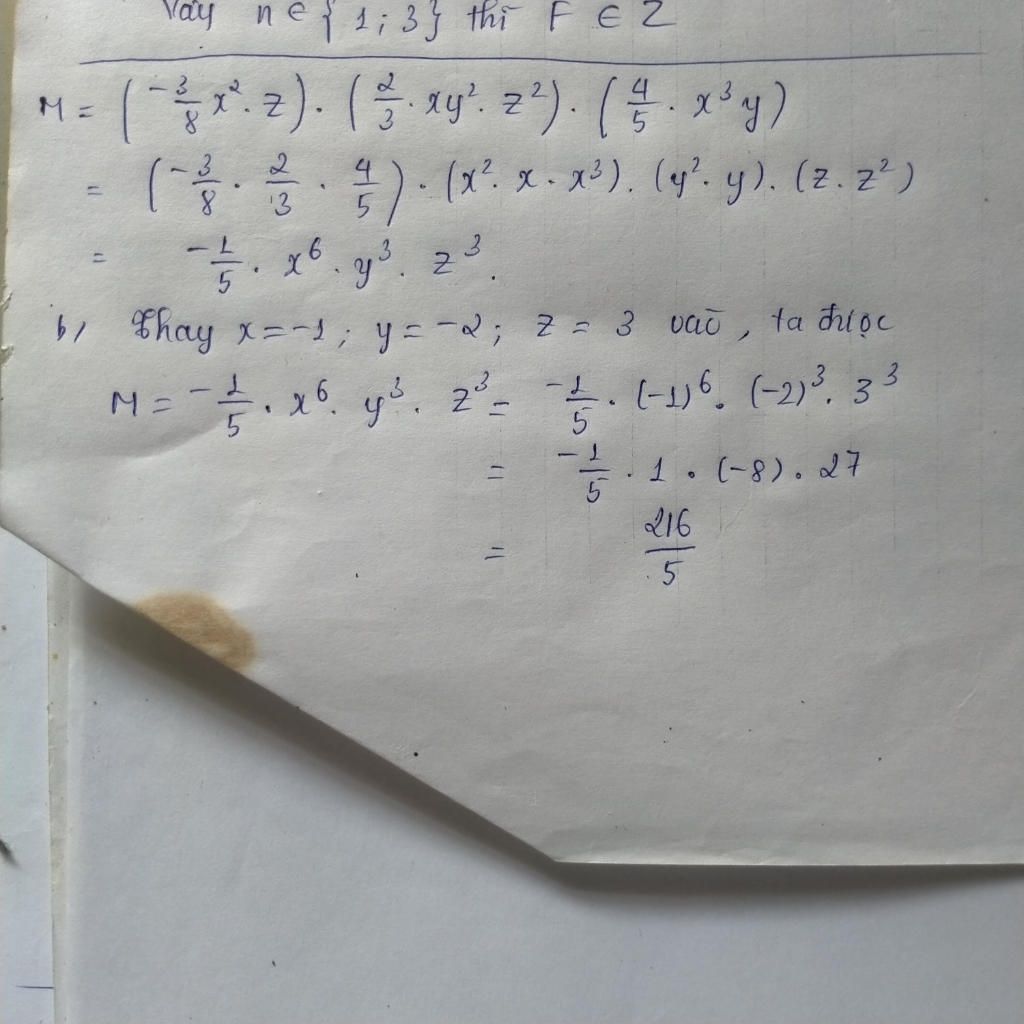 Vậy n ∈ {1; 3} thì F ∈ Z
M = (-3/8 x². z). (2/3 . xy². z²). (4/5 . x³ y)
= (-3/8 . 2/3 . 4/5). (x². x. x³). (y². y). (z. z²)
= -1/5 . x⁶. y³. z³.
b, Thay x = -1; y = -2; z = 3 vào, ta được
M = -1/5 . x⁶. y³. z³ = -1/5 . (-1)⁶. (-2)³. 3³
= -1/5 . 1 . (-8). 27
= 216/5